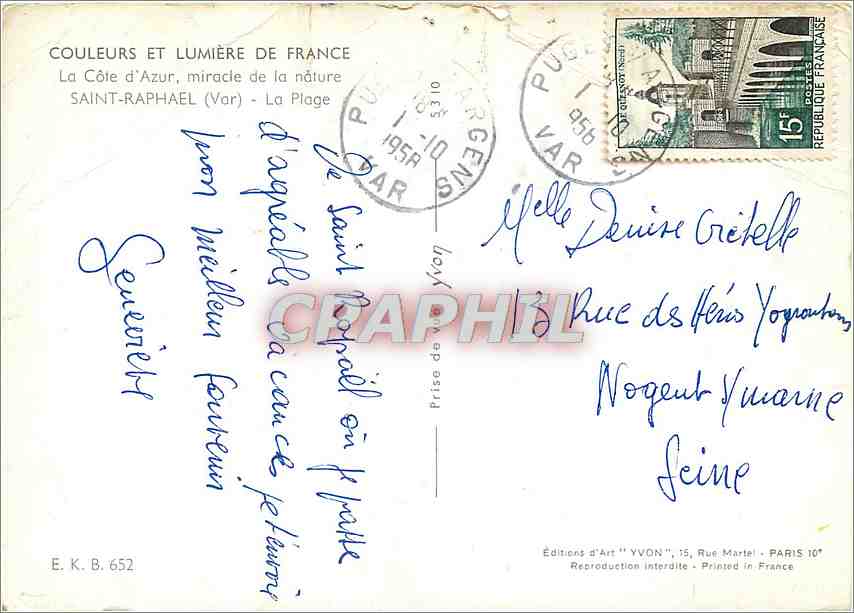 COULEURS ET LUMIÈRE DE FRANCE
La Côte d'Azur, miracle de la nature
SAINT-RAPHAEL (Var) - La Plage
De Saint Rapaël où je passe
d'agréables vacances je t'envoie
mon meilleur souvenir
Geneviève
E. K. B. 652
5310
Prise de vue Yvon
PUGET ARGENS
1 -10
1958
VAR
PUGET ARGENS
1 10
958
VAR
LE QUESNOY (Nord)
15F
POSTES
REPUBLIQUE FRANÇAISE
Melle Denise
13 Rue des Héros Nogentais
Nogent s/marne
Seine
Éditions d'Art "YVON", 15, Rue Martel - PARIS 10e
Reproduction interdite - Printed in France
CRAPHIL